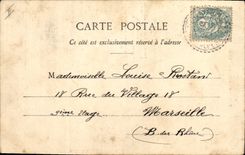 CARTE POSTALE
Ce côté est exclusivement réservé à l'adresse
Mademoiselle Louise
18 Rue du Village 18
Marseille
(B. du Rhône)